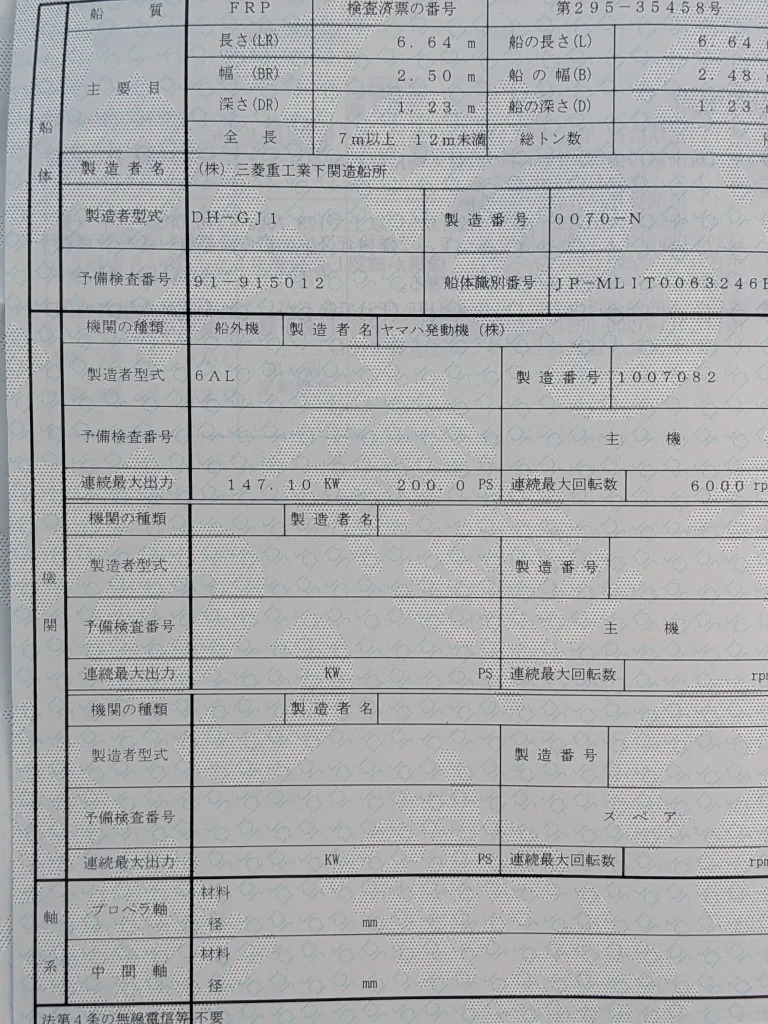 船 質 ＦＲＰ 検査済票の番号 第２９５－３５４５８号
船体
主 要 目 長さ(LR) ６．６４ m 船の長さ(L) ６．６４
幅 (BR) ２．５０ m 船 の 幅(B) ２．４８
深さ(DR) １．２３ m 船の深さ(D) １．２３
全 長 ７ｍ以上 １２ｍ未満 総トン数
製 造 者 名 （株）三菱重工業下関造船所
製造者型式 ＤＨ－ＧＪ１ 製 造 番 号 ００７０－Ｎ
予備検査番号 ９１－９１５０１２ 船体識別番号 ＪＰ－ＭＬＩＴ００６３２４６
機関
機関の種類 船外機 製 造 者 名 ヤマハ発動機（株）
製造者型式 ６ＡＬ 製 造 番 号 １００７０８２
予備検査番号 主 機
連続最大出力 １４７．１０ KW ２００．０ PS 連続最大回転数 ６０００ rp
機関の種類 製 造 者 名
製造者型式 製 造 番 号
予備検査番号 主 機
連続最大出力 KW PS 連続最大回転数 rpm
機関の種類 製 造 者 名
製造者型式 製 造 番 号
予備検査番号 ス ペ ア
連続最大出力 KW PS 連続最大回転数 rpm
軸系
プロペラ軸 材料
径 mm
中 間 軸 材料
径 mm
法第４条の無線電信等 不要